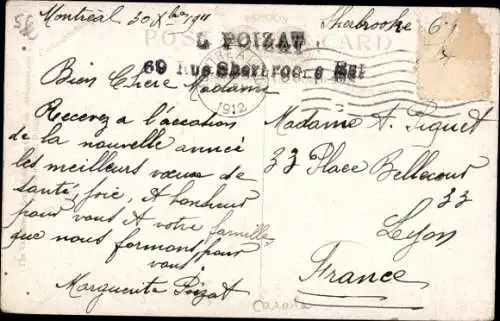 Montréal, 30 Xbre 1911
Bien Chère Madame
Recevez à l'occasion
de la nouvelle année
les meilleurs vœux de
santé, joie, & bonheur
pour vous & votre famille
que nous formons pour
vous
Marguerite Poizat
FAMOUS
POST CARD
L POIZAT
69 Rue Sherbrooke Est
1912
Sherbrooke
Madame A. Piguet
33 Place Bellecour
33
Lyon
France
Canada